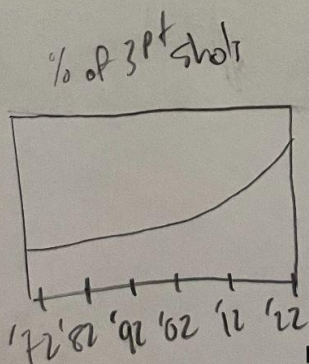 % of 3pt shots
'72 '82 '92 '02 '12 '22